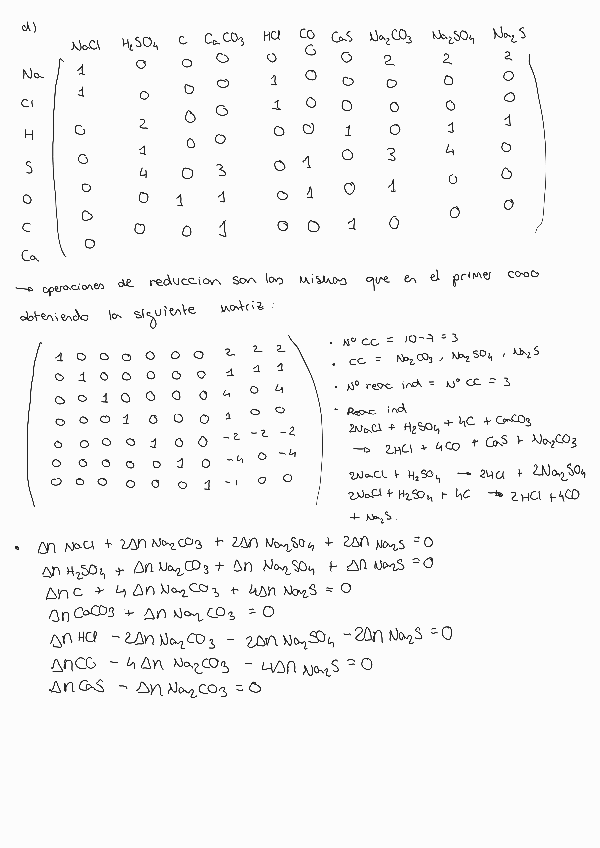 d)
NaCl H₂SO₄ C CaCO₃ HCl CO CaS Na₂CO₃ Na₂SO₄ Na₂S
Na 1 0 0 0 0 0 0 2 2 2
Cl 1 0 0 0 1 0 0 0 0 0
H 0 2 0 0 1 0 0 0 0 0
S 0 1 0 0 0 0 1 0 1 1
O 0 4 0 3 0 1 0 3 4 0
C 0 0 1 1 0 1 0 1 0 0
Ca 0 0 0 1 0 0 1 0 0 0
→ operaciones de reduccion son las mismas que en el primer caso
obteniendo la siguiente matriz:
1 0 0 0 0 0 0 2 2 2
0 1 0 0 0 0 0 1 1 1
0 0 1 0 0 0 0 4 0 4
0 0 0 1 0 0 0 1 0 0
0 0 0 0 1 0 0 -2 -2 -2
0 0 0 0 0 1 0 -4 0 -4
0 0 0 0 0 0 1 -1 0 0
· Nº CC = 10-7 = 3
· CC = Na₂CO₃, Na₂SO₄, Na₂S
· Nº reac ind = Nº CC = 3
- Reac ind
2NaCl + H₂SO₄ + 4C + CaCO₃
→ 2HCl + 4CO + CaS + Na₂CO₃
2NaCl + H₂SO₄ → 2HCl + 2Na₂SO₄
2NaCl + H₂SO₄ + 4C → 2HCl + 4CO
+ Na₂S.
• Δn NaCl + 2Δn Na₂CO₃ + 2Δn Na₂SO₄ + 2Δn Na₂S = 0
Δn H₂SO₄ + Δn Na₂CO₃ + Δn Na₂SO₄ + Δn Na₂S = 0
Δn C + 4Δn Na₂CO₃ + 4Δn Na₂S = 0
Δn CaCO₃ + Δn Na₂CO₃ = 0
Δn HCl - 2Δn Na₂CO₃ - 2Δn Na₂SO₄ - 2Δn Na₂S = 0
Δn CO - 4Δn Na₂CO₃ - 4Δn Na₂S = 0
Δn CaS - Δn Na₂CO₃ = 0